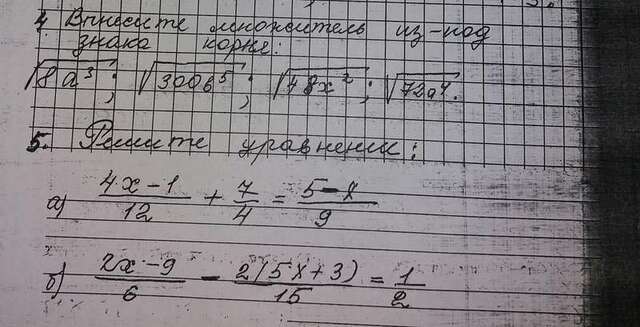 4. Внесите множитель из-под
знака корня:
√8a³; √300b⁵; √48x²; √72a⁴.
5. Решите уравнения:
а) (4x-1)/12 + 7/4 = (5-x)/9
б) (2x-9)/6 - 2(5x+3)/15 = 1/2